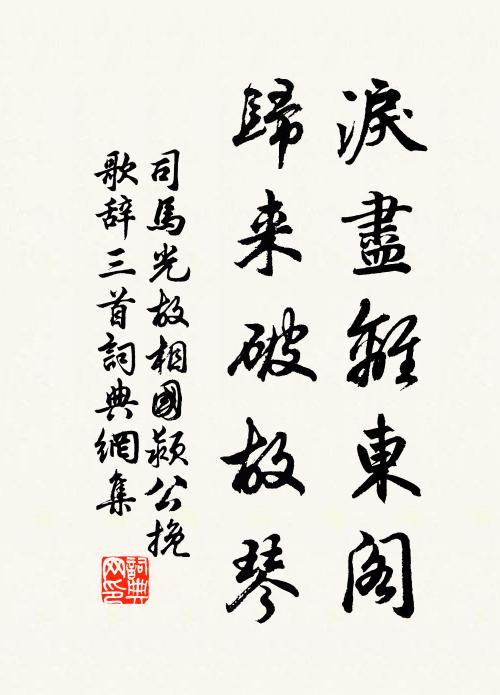 淚盡離東閣
歸来破故琴
司馬光故相國颍公挽
歌辞三首詞典網集
詞典网印